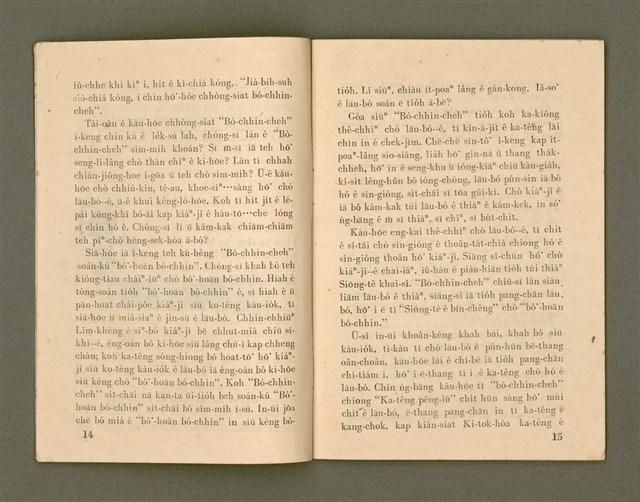 iû-chhe khì kìⁿ i, hit ê kì-chiá kóng, "Jiá-bih-suh
sió-chiá kóng, i chin hō͘-hōe chhòng-siat bó-chhin-
cheh".
Tâi-oân ê kàu-hōe chhòng-siat "Bó-chhin-cheh"
í-keng chin kú ê le̍k-sú lah, chóng-sī lán ê "Bó-
chhin-cheh" sím-mih khoán? Sī m̄-sī iā teh hō͘
seng-lí-lâng chò thàn chîⁿ ê ki-hōe? Lán tī chhah
chián-jiông-hoe í-gōa ū teh chò sím-mih? Ū-ê kàu-
hōe chò chhiú-kin, tê-au, khoe-sìⁿ…sàng hō͘ chò
lāu-bó--ê, ū-ê khui kéng-ló-hōe. Koh tī hit ji̍t ê lé-
pài kóng-khí bó-ài kap kiáⁿ-jî ê hàu-tō…che lóng
sī chin hó ê. Chóng-sī lí ū kám-kak chiām-chiām
teh pìⁿ-chò hêng-sek-hòa á-bô?
Siā-hōe iā í-keng teh kù-hêng "Bó-chhin-cheh"
soán-kú "bô͘-hoān bó-chhin". Chóng-sī khah bô teh
kiông-tiau chāiⁿ-iūⁿ chò bô͘-hoān bó-chhin. Hiah ê
tông-soán tio̍h "bô͘-hoān bó-chhin" ê, sī hiah ê ū
pān-hoat chāi-pôe kiáⁿ-jî siū ko-téng kàu-io̍k, tī
siā-hōe ū miâ-siaⁿ ê jîn-sū ê lāu-bó. Chhin-chhiūⁿ
Lîm-khêng ê siⁿ-bó kiáⁿ-jî bē chhut-miâ chiū sí-
khì--ê, éng-oán bô ki-hōe siū lâng chù-ì kap chheng
chàn; koh ka-têng sòng-hiong bô hoat-tō͘ hō͘ kiáⁿ-
jî siū ko-téng kàu-io̍k ê lāu-bó iā éng-oán bô ki-hōe
siū kéng chò "bô͘-hoān bó-chhin". Koh "Bó-chhin-
cheh" sit-chāi nā kan-ta ūi-tio̍h beh soán-kú "Bô͘-
hoān bó-chhin" sit-chāi bô sím-mih ì-sù. In-ūi jōa
chē bô miâ ê "bô͘-hoān bó-chhin" in siū kéng bô-
14
tio̍h. Lí siūⁿ, chiàu it-poaⁿ lâng ê gán-kong, Iâ-so͘
ê lāu-bó soán ē tio̍h á-bē?
Góa siūⁿ "Bó-chhin-cheh" tio̍h koh ka-kiông
thê-chhíⁿ chò lāu-bó--ê, tī kin-á-ji̍t ê ka-têng lāi
chin in ê chek-jīm. Chē-chē sìn-tô͘ í-keng kap it-
poaⁿ-lâng sio-siāng, lia̍h hō͘ gín-ná ū thang tha̍k-
chheh, hō͘ in ê seng-khu ū ióng-kiāⁿ chiū kàu-gia̍h,
kî-sit lêng-hûn bô ióng-chòng, lāu-bó pún-sin iā bô
hó ê sìn-gióng, sit-chāi sī tōa gûi-ki. Chò kiáⁿ-jî ê
iā bô kám-kak tùi lāu-bó ê thiàⁿ ê kám-kek, in só͘
ǹg-bāng ê m̄ sī thiàⁿ, sī chîⁿ, sī bu̍t-chit.
Kàu-hōe eng-kai thê-chhíⁿ chò lāu-bó--ê, tī chit
ê sî-tāi chò sìn-gióng ê thoân-ta̍t-chiá chiong hó ê
sìn-gióng thoân hō͘ kiáⁿ-jî. Siāng sî-chūn hō͘ chò
kiáⁿ-jî--ê chai-iáⁿ, iû-hāu ê piáu-hiān tio̍h tùi thiàⁿ
Siōng-tè khai-sí. "Bó-chhin-cheh" chiū-sī lán siàu-
liām lāu-bó ê thiàⁿ, siāng-sî iā tio̍h pang-chān lāu-
bó, hō͘ i ē tī "Siōng-tè ê bīn-chêng" chò "bô͘-hoān
bó-chhin."
Ū-sî in-ūi khoân-kéng khah bái, khah bô siū
kàu-io̍k, tì-kàu tī chò lāu-bó ê pún-hūn bē-thang
oân-choân, kàu-hōe lāi ê chí-bē iā tio̍h pang-chān
chí-tiám i, hō͘ i ē-thang tī i ê ka-têng chò hó ê
lāu-bó. Chin ǹg-bāng kàu-hōe tī "bó-chhin-cheh"
chiong "Ka-têng pêng-iú" chit hūn sàng hō͘ múi
chi̍t ê lāu-bó, ē-thang pang-chān in tī ka-têng ê
kang-chok, kap kiàn-siat Ki-tok-hòa ka-têng ê
15